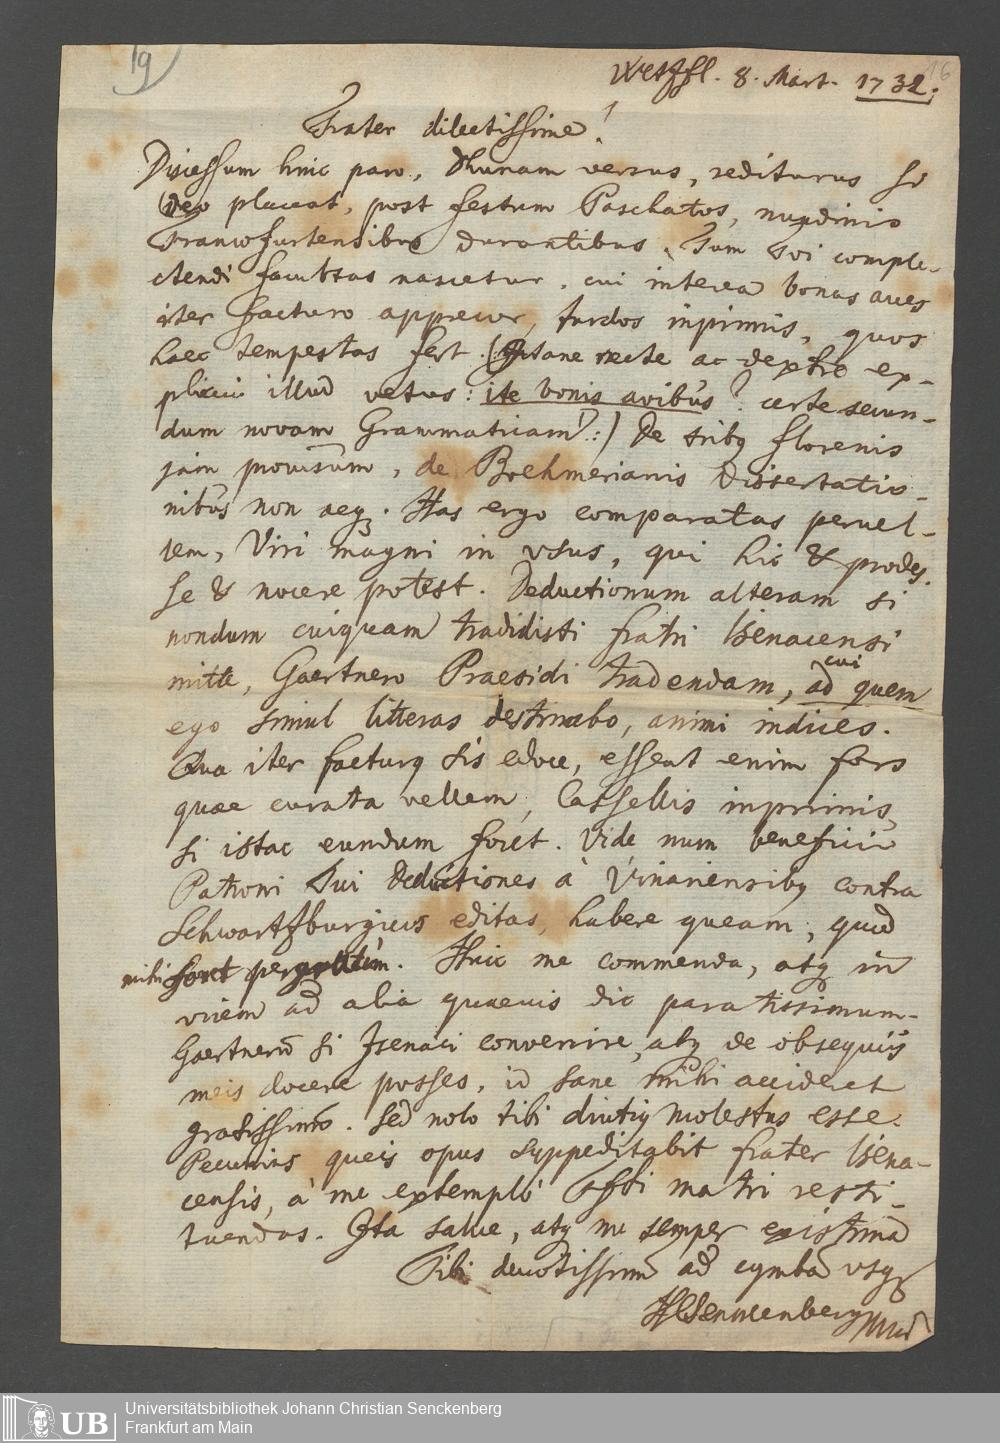 19
16
Wetzfl. 8. Mart. 1732.
Frater dilectissime!
Discessum hinc paro, Dhunam versus, rediturus si
Deo placeat, post festum Paschatos, nundinis
Francofurtensibus durantibus. Tum Tui comple-
ctendi facultas nascetur, cui interea bonas aves
iter facturo apprecor, turdos inprimis, quos
haec tempestas fert. (Satane recte ac dextre ex-
plicui illud vetus: ite bonis avibus? certe secun-
dum novam Grammaticam!:) De tribq florenis
jam provisum, de Boehmerianis Dissertatio-
nibus non aeq. Has ergo comparatas pervel-
lem, Viri magni in usus, qui hic & prodes-
se & nocere potest. Deductionum alteram si
nondum cuiquam tradidisti fratri Isenacensi
mitte, Gaertnero Praesidi tradendam, ad quem
cui
ego simul litteras destinabo, animi indices.
Qua iter facturq sis edoce, essent enim fors
quae curata vellem, Cassellis inprimis,
si istac eundum foret. Vide num beneficio
Patroni Tui Deductiones à Vinariensibq contra
Schwartzburgicos editas, habere queam, quod
mihi foret pergratum. Huic me commenda, atq in
vicem ad alia quaevis dic paratissimum.
Gaertnerū si Isenaci convenire, atq de obsequiis
meis docere posses, id sane mihi accideret
gratissimū. Sed nolo tibi diutiq molestus esse.
Pecunias queis opus suppeditabit frater Isena-
censis, à me extemplo matri resti-
tuendas. Ita salve, atq me semper existima
Tibi devotissimū ad cymbā usq
HCSenckenberg
UB Universitätsbibliothek Johann Christian Senckenberg
Frankfurt am Main